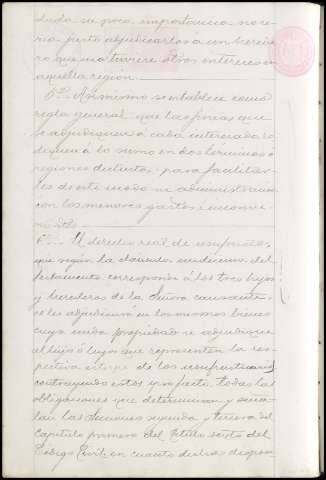 dada su poca importancia no se-
ria justo adjudicarlas á un herede
ro que no tuviere otros intereses en
aquella región.
5º Asimismo se establece como
regla general que las fincas que
se adjudiquen á cada interesado ra
diquen á lo sumo en dos términos ó
regiones distintas, para facilitar-
les de este modo su administracion
con los menores gastos é inconve-
nientes
6º El derecho real de usufructo,
que según la cláusula del
testamento corresponde á los tres hijos
y herederos de la Señora causante,
se les adjudicará en los mismos bienes
cuya nuda propiedad se adjudique
al hijo ó hijos que representen la res-
pectiva estirpe de los usufructuarios
contrayendo estos ipso facto, todas las
obligaciones que determinan y seña-
lan las Secciones segunda y tercera del
Capítulo primero del título sexto del
Código Civil, en cuanto dichas disposi-